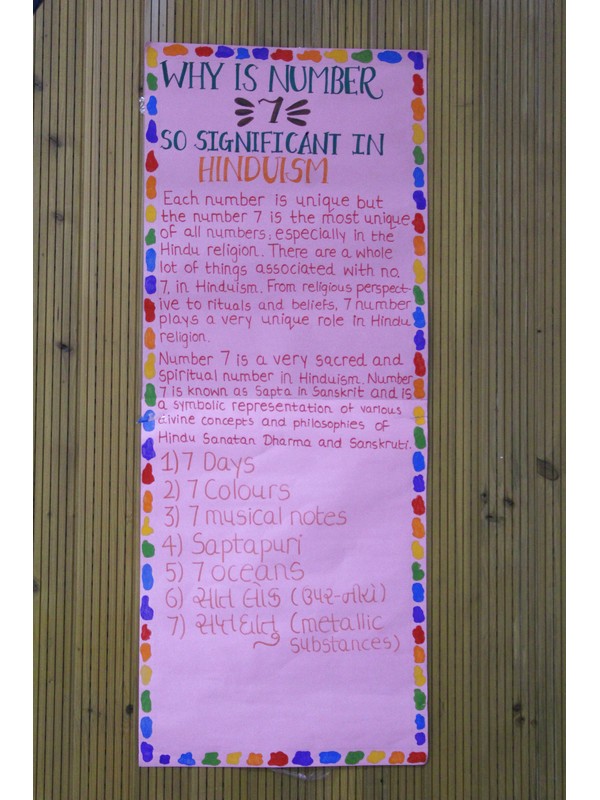 WHY IS NUMBER
7
SO SIGNIFICANT IN
HINDUISM
Each number is unique but
the number 7 is the most unique
of all numbers, especially in the
Hindu religion. There are a whole
lot of things associated with no.
7, in Hinduism. From religious perspect-
ive to rituals and beliefs, 7 number
plays a very unique role in Hindu
religion.
Number 7 is a very sacred and
spiritual number in Hinduism. Number
7 is known as Sapta in Sanskrit and is
a symbolic representation of various
divine concepts and philosophies of
Hindu Sanatan Dharma and Sanskruti.
1) 7 Days
2) 7 Colours
3) 7 musical notes
4) Saptapuri
5) 7 oceans
6) સાત લોક (ઉપર-નીચે)
7) સપ્તધાતુ (metallic
substances)